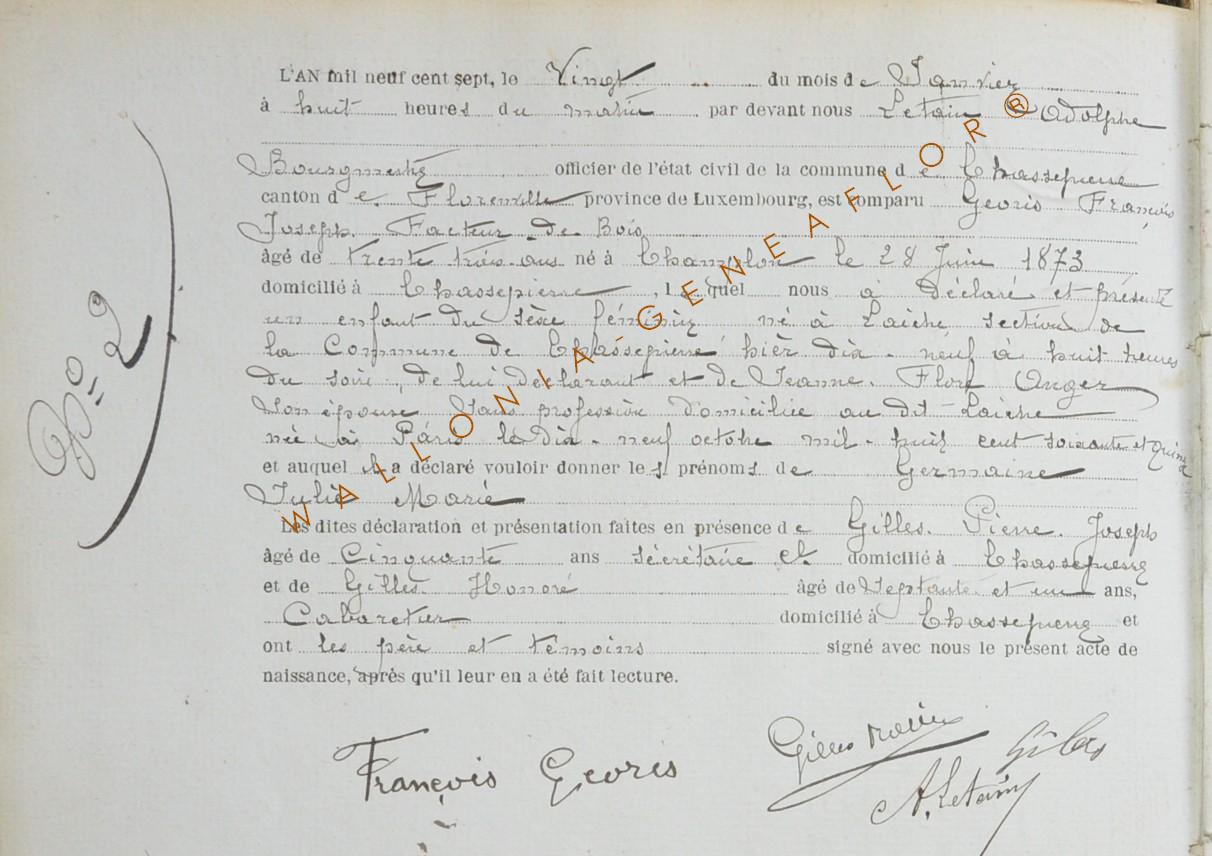 L'AN mil neuf cent sept, le Vingt du mois de Janvier
à huit heures du matin par devant nous Letain Adolphe
Bourgmestre officier de l'état civil de la commune de Chassepierre
canton de Florenville province de Luxembourg, est comparu Georis François
Joseph. Facteur de Bois
âgé de trente trois ans né à Champlon le 28 Juin 1873
domicilié à Chassepierre, lequel nous a déclaré et présenté
un enfant du sèxe féminin né à Laiche section de
la Commune de Chassepierre hièr dix-neuf à huit heures
du soir, de lui déclarant et de Jeanne. Flore Unger
son épouse sans profession domiciliée au dit-Laiche
née à Paris le dix-neuf octobre mil-huit cent soixante et quinze
et auquel il a déclaré vouloir donner les prénoms de Germaine
Julie Marie
Les dites déclaration et présentation faites en présence de Gilles. Pierre. Joseph
âgé de Cinquante ans sécrétaire et domicilié à Chassepierre
et de Gilles Honoré âgé de Septante et un ans,
Cabaretier domicilié à Chassepierre et
ont les père et témoins signé avec nous le présent acte de
naissance, après qu'il leur en a été fait lecture.
No 2
François Georis Gilles Gilles
A. Letain
WALLONIA-GENEAFLOR®